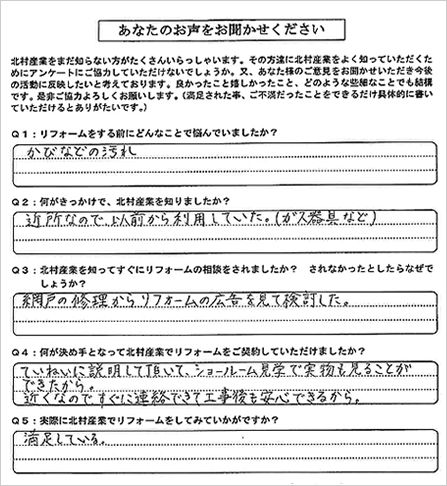 あなたのお声をお聞かせください
北村産業をまだ知らない方がたくさんいらっしゃいます。その方達に北村産業をよく知っていただくた
めにアンケートにご協力していただけないでしょうか。又、あなた様のご意見をお聞かせいただき今後
の活動に反映したいと考えております。良かったこと嬉しかったこと、どのような些細なことでも結構
です。是非ご協力よろしくお願いします。（満足された事、ご不満だったことをできるだけ具体的に書い
ていただけるとありがたいです。）
Q1：リフォームをする前にどんなことで悩んでいましたか？
かびなどの汚れ
Q2：何がきっかけで、北村産業を知りましたか？
近所なので、以前から利用していた。（ガス器具など）
Q3：北村産業を知ってすぐにリフォームの相談をされましたか？　されなかったとしたらなぜで
しょうか？
網戸の修理からリフォームの広告を見て検討した。
Q4：何が決め手となって北村産業でリフォームをご契約していただけましたか？
ていねいに説明して頂いて、ショールーム見学で実物も見ることが
できたから。
近くなのですぐに連絡できて工事後も安心できるから。
Q5：実際に北村産業でリフォームをしてみていかがですか？
満足している。